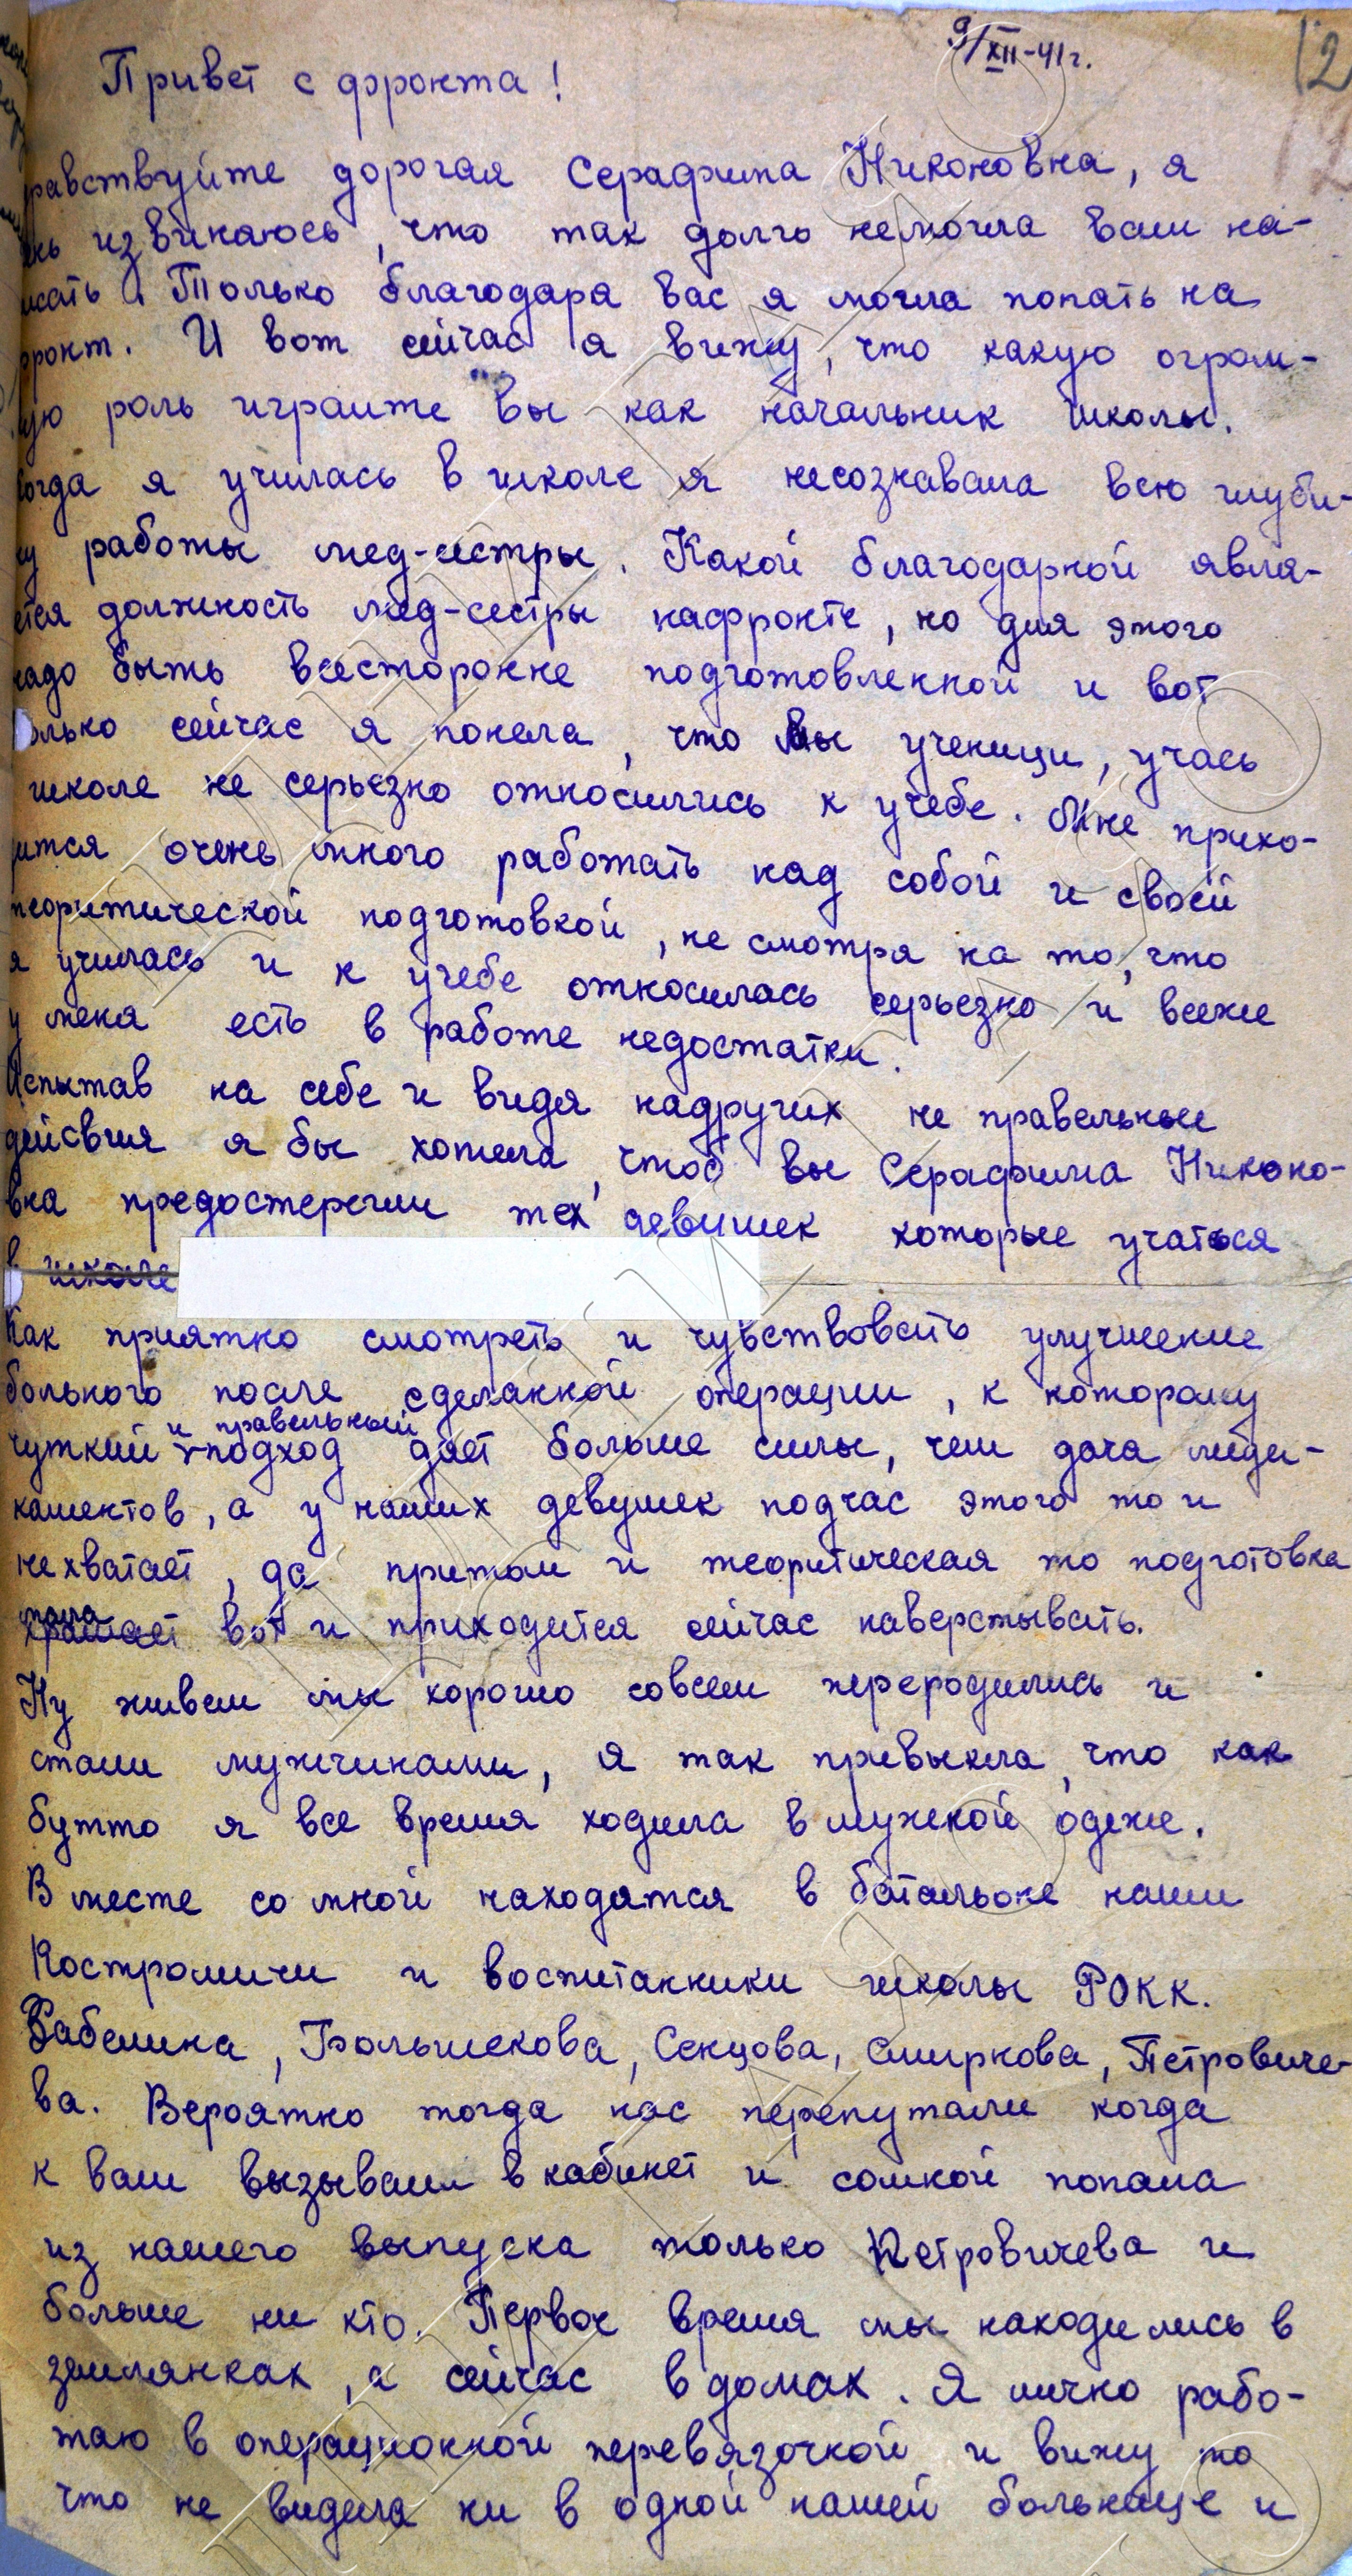 9/XII-41г.
12
Привет с фронта!
равствуйте дорогая Серафима Никоновна, я
нь извиняюсь, что так долго немогла вам на-
исать. Только благодаря вас я могла попать на
фронт. И вот сейчас я вижу, что какую огром-
ую роль играите вы как начальник школы.
Когда я училась в школе я несознавала всю глуби-
ну работы мед-сестры. Какой благодарной явля-
ется должность мед-сестры нафронте, но для этого
надо быть всесторонне подготовленной и вот
олько сейчас я понела, что мы ученицы, учась
школе не серьезно относились к учебе. Мне прихо-
дится очень много работать над собой и своей
теоритической подготовкой, не смотря на то, что
я училась и к учебе относилась серьезно и всеже
у меня есть в работе недостатки.
Испытав на себе и видя надругих не правельные
дейсвия я бы хотела, чтоб вы Серафима Никоно-
вна предостерегли тех девушек которые учаться
в школе
Как приятно смотреть и чувствовать улучшение
больного после сделанной операции, к которому
и правельный
чуткий подход дает больше силы, чем дача меди-
каментов, а у наших девушек подчас этого то и
нехватает, да притом и теоритическая то подготовка
мала
хромает вот и приходится сейчас наверстывать.
Ну живем мы хорошо совсем переродились и
стали мужчинами, я так превыкла, что как
бутто я все время ходила в мужской одеже.
В месте со мной находятся в батальоне наши
Костромичи и воспитанники школы РОКК.
Забелина, Большекова, Сенцова, Смиркова, Петровиче-
ва. Вероятно тогда нас перепутали когда
к вам вызывали в кабинет и сомной попала
из нашего выпуска только Петровичева и
больше ни кто. Первое время мы находились в
землянках, а сейчас в домах. Я лично рабо-
таю в операционной перевязочной и вижу то
что не видела ни в одной нашей больнице и